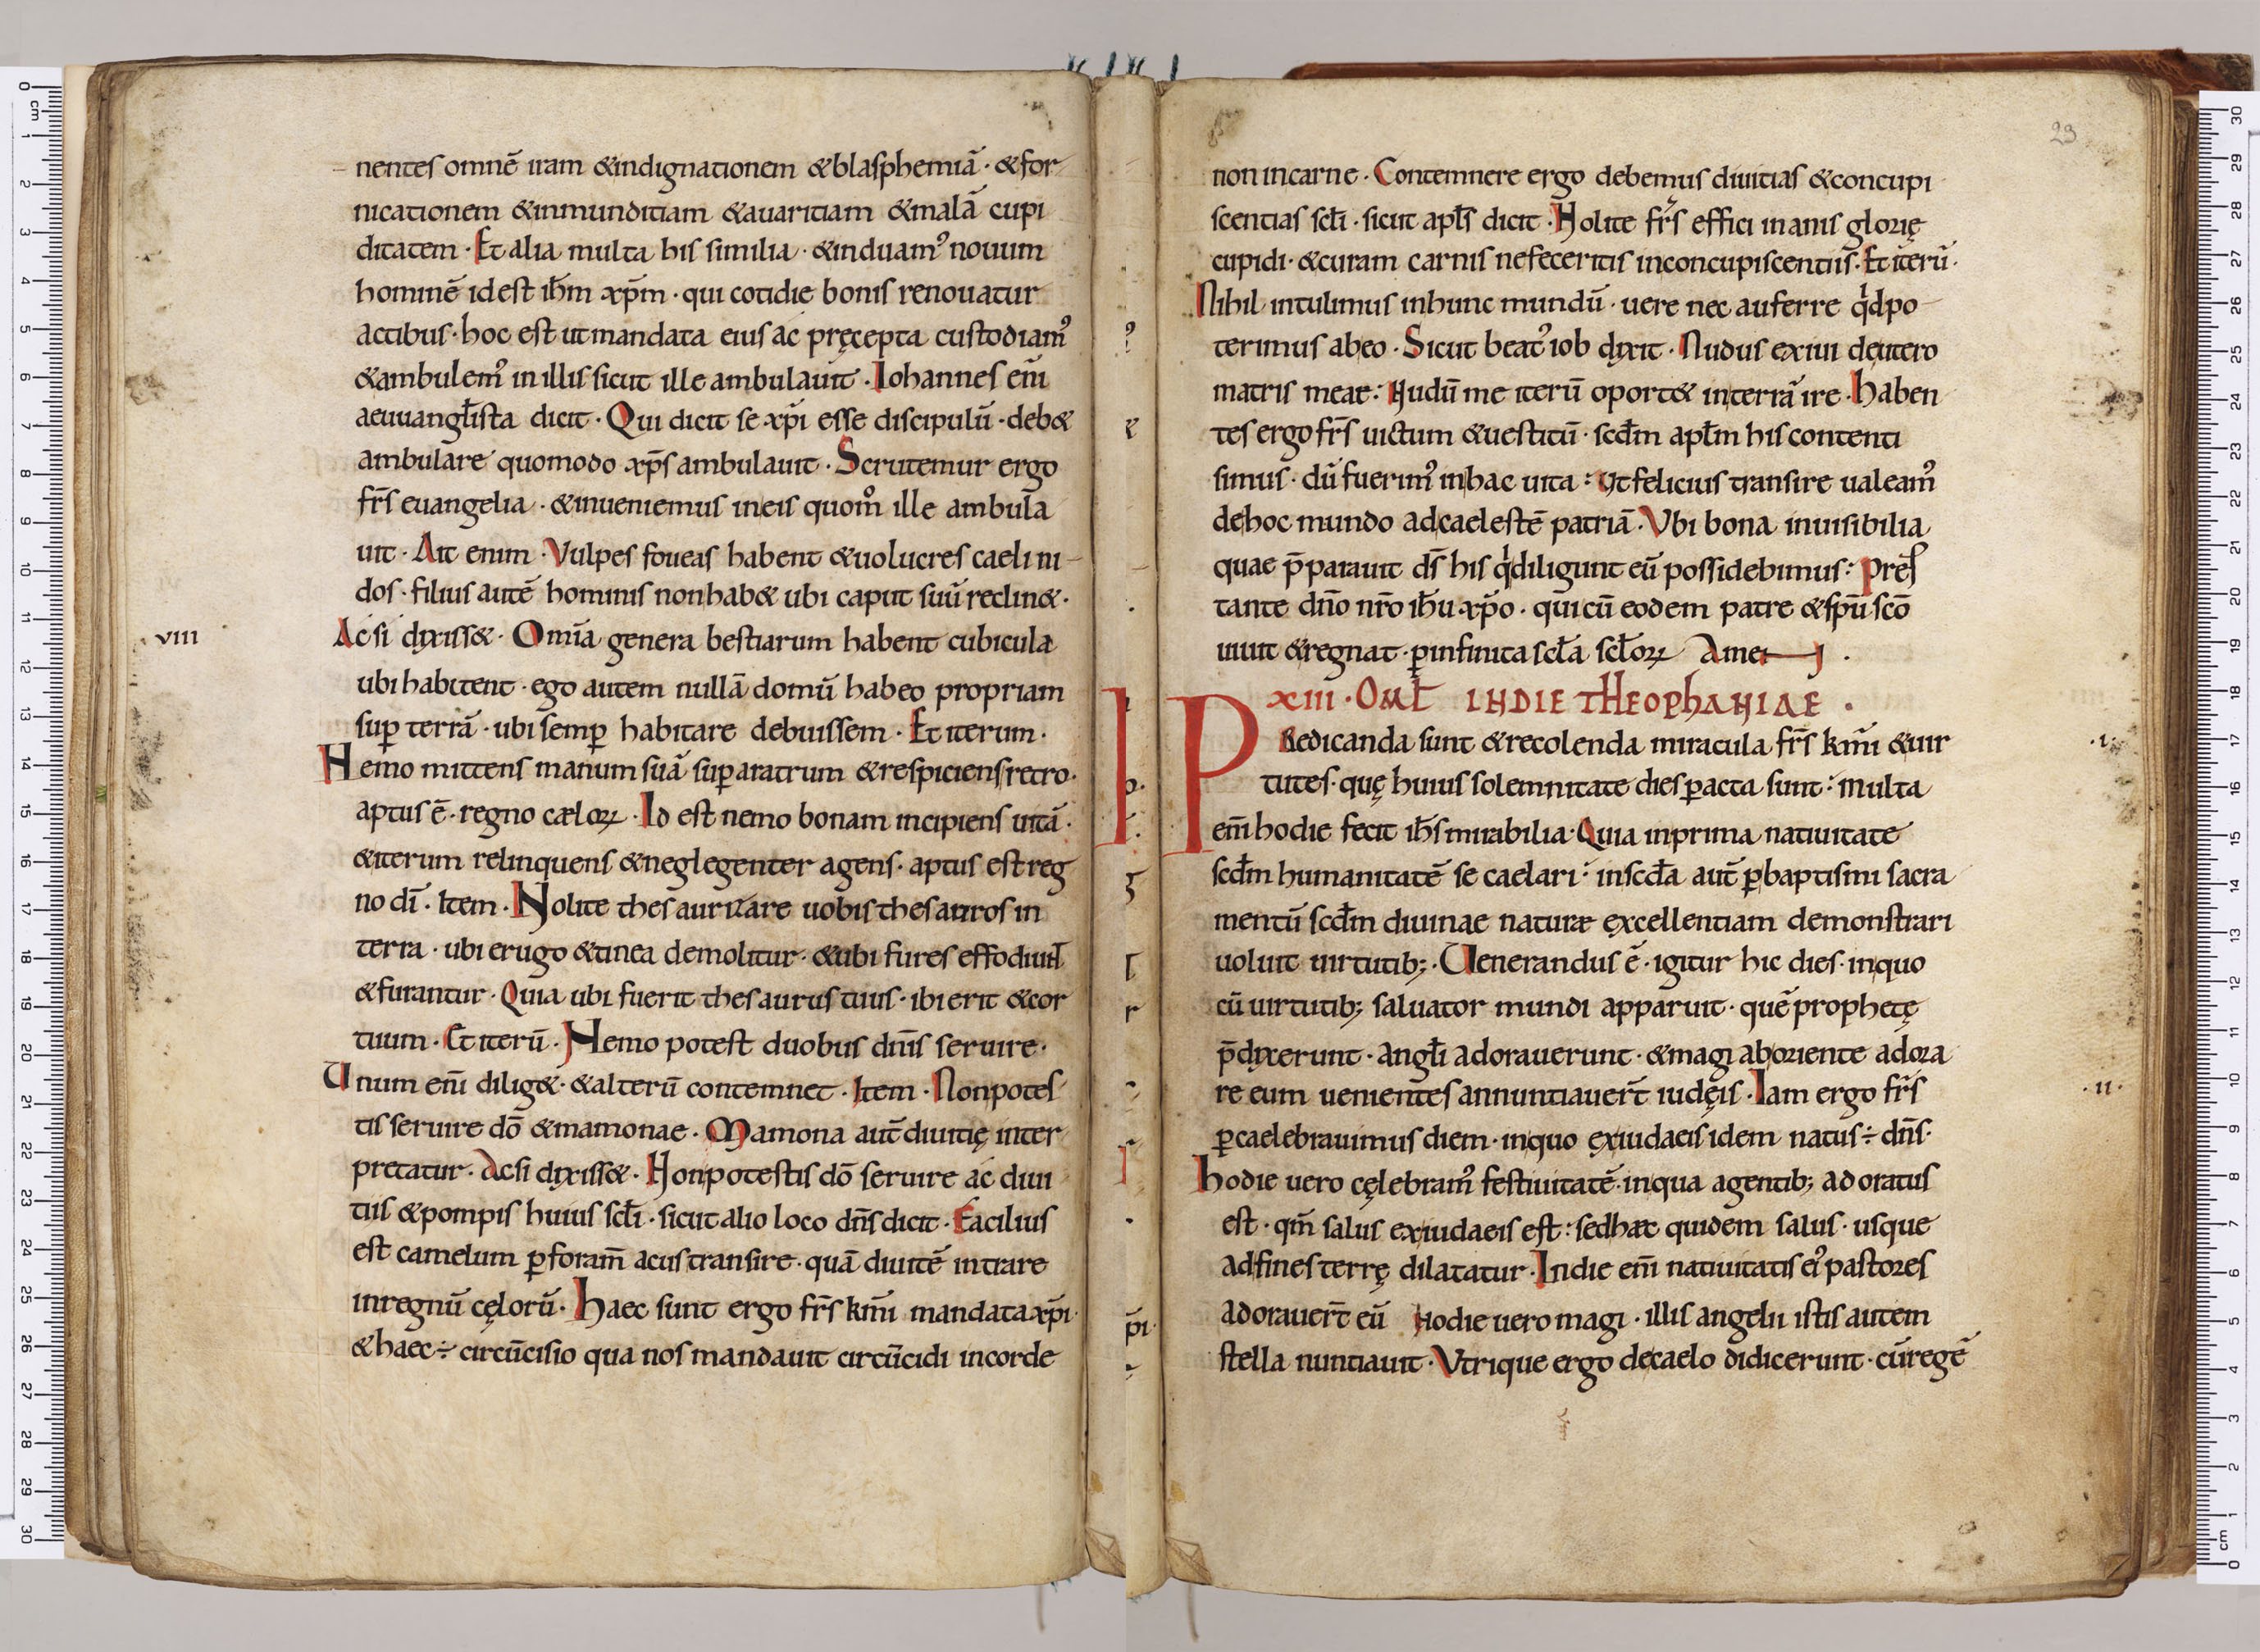 nentes omnē iram &indignationem &blasphemiā · &for
nicationem &inmunditiam &auaritiam &malā cupi
ditatem · Et alia multa his similia · &induam᾿ nouum
hominē id est ih̄m xp̄m · qui cotidie bonis renouatur
actibus · hoc est ut mandata eius ac pręcepta custodiam᾿
&ambulem᾿ in illis sicut ille ambulauit · Iohannes eni̅
aeuuangl̄ista dicit · Qui dicit se xp̄i esse discipulū · deb&
ambulare quomodo xp̄s ambulauit · Scrutemur ergo
fr̄s euangelia · &inueniemus in eis quom̊ ille ambula
uit · Ait enim · Vulpes foueas habent &uolucres caeli ni
dos · filius autē hominis non hab& ubi caput suū reclin& ·
viii
Ac si dixiss& · Omīa genera bestiarum habent cubicula
ubi habitent · ego autem nullā domū habeo propriam
suꝑ terrā · ubi semꝑ habitare debuissem · Et iterum ·
Nemo mittens manum suā suꝑ aratrum &respiciens retro ·
aptus ē · regno cęloꝝ · Id est nemo bonam incipiens uitā ·
&iterum relinquens &neglegenter agens · aptus est reg
no dī · Item · Nolite thesaurizare uobis thesauros in
terra · ubi erugo &tinea demolitur · &ubi fures effodiunt
&furantur · Quia ubi fuerit thesaurus tuus · ibi erit &cor
tuum · Et iterū · Nemo potest duobus dn̄is seruire ·
Unum eni̅ dilig& · &alterū contemnet · Item · Non potes
tis seruire dō &mamonae · Mamona aut̄ diuitię inter
pretatur · Ac si dixiss& · Non potestis dō seruire ac diui
tiis &pompis huius scl̄i · sicut alio loco dn̄s dicit · Facilius
est camelum ꝑ foram̄ acus transire · quā diuitē intrare
in regnū cęlorū · Haec sunt ergo fr̄s km̄i mandata xp̄i ·
&haec ÷ circūcisio qua nos mandauit circūcidi in corde
23
non in carne · Contemnere ergo debemus diuitias &concupi
scentias scl̄i · sicut apl̄s dicit · Nolite fr̄s effici inanis glorię
cupidi · &curam carnis ne feceritis in concupiscentiis · Et iterū ·
Nihil intulimus in hunc mundū · uere nec auferre qd po
terimus ab eo · Sicut beat᾿ iob dixit · Nudus exiui de utero
matris meae : Nudū me iterū oport& in terrā ire · Haben
tes ergo fr̄s uictum &uestitū · scd̄m apl̄m his contenti
simus · dū fuerim᾿ in hac uita : Ut felicius transire ualeam᾿
de hoc mundo ad caelestē patriā · Vbi bona inuisibilia
quae p̄parauit ds̄ his q́ diligunt eū possidebimus : Pręs
tante dn̄o nr̄o ih̄u xp̄o · qui cū eodem patre &spū scō
uiuit &regnat · ꝑ infinita scl̄a scl̄oꝝ Amen ·
xiii · OML̄ IN DIE THEOPhANIAE ·
PRedicanda sunt &recolenda miracula fr̄s km̄i &uir
·i·
tutes · quę huius solemnitate dies ꝑacta sunt : multa
eni̅ hodie fecit ih̄s mirabilia · Quia in prima natiuitate
scd̄m humanitatē se caelari : in scd̄a aut̄ ꝑ baptismi sacra
mentū scd̄m diuinae naturæ excellentiam demonstrari
uoluit uirtutib; · Uenerandus ē · igitur hic dies · in quo
cū uirtutib; saluator mundi apparuit · quē prophetę
p̄dixerunt · angl̄i adorauerunt · &magi ab oriente adora
re eum uenientes annuntiauer̄t iudęis · Iam ergo fr̄s
·ii·
ꝑcaelebrauimus diem · in quo ex iudaeis idem natus ÷ dn̄s ·
Hodie uero cęlebram᾿ festiuitatē · in qua a gentib; adoratus
est · qm̄ salus ex iudaeis est : sed hæc quidem salus · usque
ad fines terrę dilatatur · In die eni̅ natiuitatis ei᾿ pastores
adorauer̄t eū Hodie uero magi · illis angeli istis autem
stella nuntiauit · Vtrique ergo de caelo didicerunt · cū regē